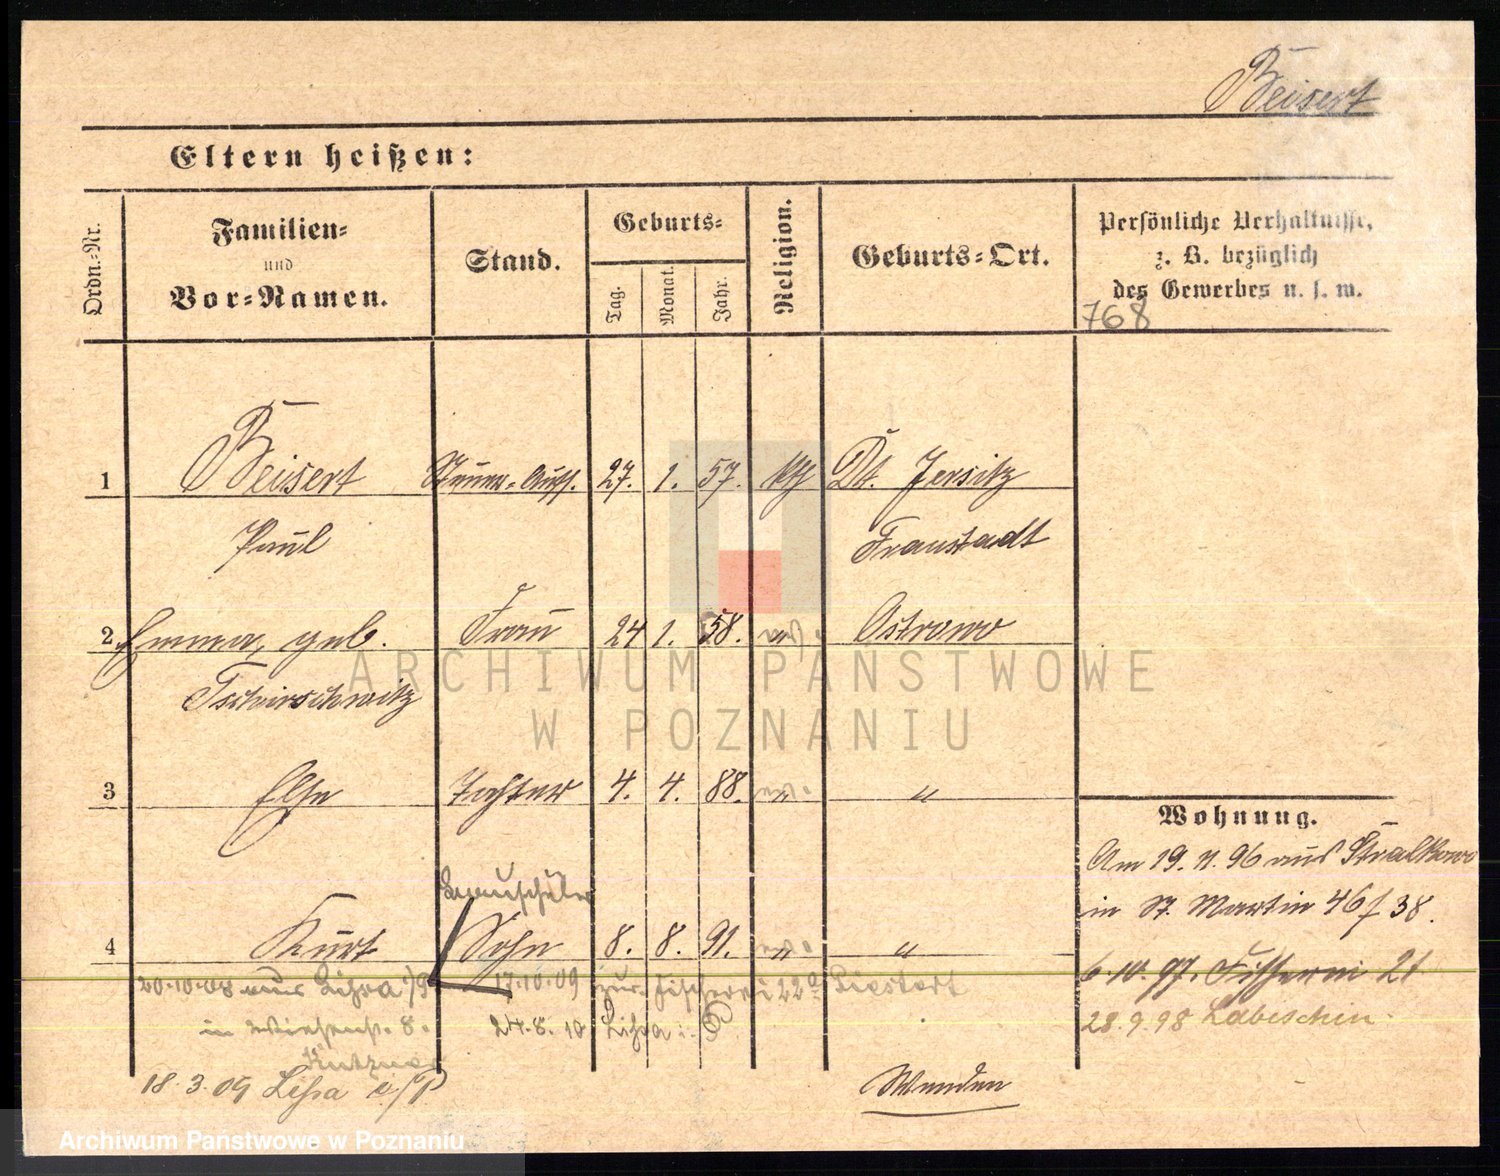 Beisert
Eltern heißen:
Ordn.-Nr.
Familien-
und
Vor-Namen.
Stand.
Geburts-
Tag.
Monat.
Jahr.
Religion.
Geburts-Ort.
Persönliche Verhältnisse,
z. B. bezüglich
des Gewerbes u. s. w.
768
1 Beisert Steuer-Auff. 27. 1. 57. kth Dt. Jersitz
Paul Fraustadt
2 Emma, geb. Frau 24 1. 58. " Ostrowo
Tschirschwitz
ARCHIWUM PAŃSTWOWE
W POZNANIU
3 Else Tochter 4. 4. 88. " "
Wohnung.
Am 19. 4. 96 aus Stralkowo
in St. Martin 46/ 38.
4 Kurt Sohn 8. 8. 91. " "
6.10.97. Fischerei 21
28.9.98 Labischin.
20.10.08 aus Lissa i/P 17.10.09 zur. Fischerei 22a
in Wiesenstr. 8. 24.8.10 Lissa i. P
18.3.09 Lissa i/P
Wenden
Archiwum Państwowe w Poznaniu